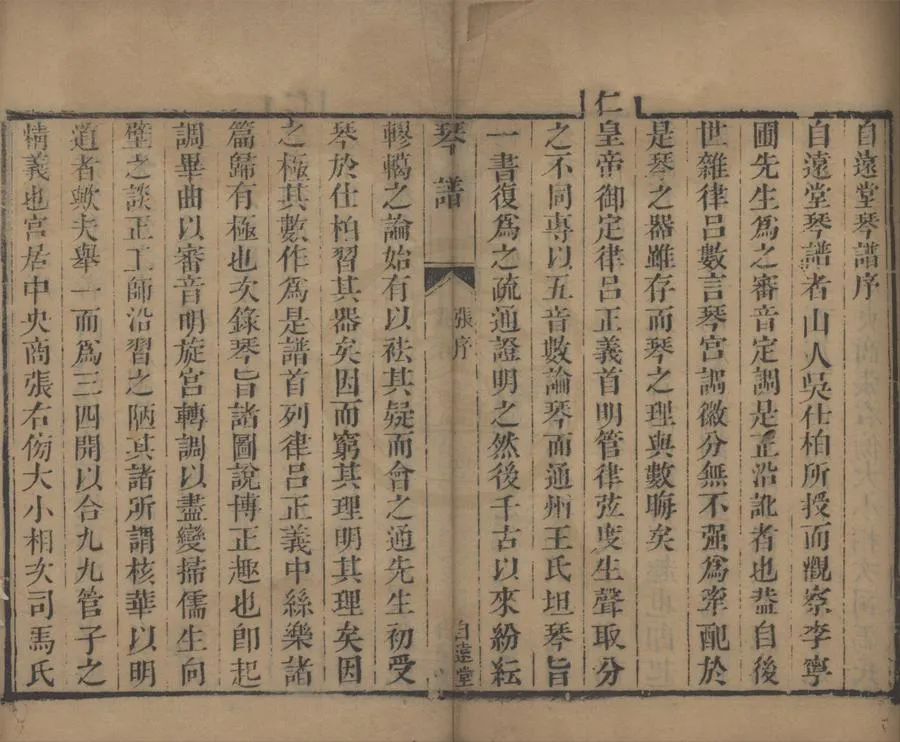 自遠堂琴譜序
自遠堂琴譜者山人吳仕柏所授而觀察李寧
圃先生爲之審音定調是正沿訛者也葢自後
世雜律呂數言琴宮調徽分無不强爲牽配於
是琴之器雖存而琴之理與數晦矣
仁皇帝御定律呂正義首明管律弦度生聲取分
之不同專以五音數論琴而通州王氏坦琴旨
一書復爲之疏通證明之然後千古以來紛紜
琴譜
張序
自遠堂
轇轕之論始有以袪其疑而會之通先生初受
琴於仕柏習其器矣因而窮其理明其理矣因
之極其數作爲是譜首列律呂正義中絲樂諸
篇歸有極也次錄琴旨諸圖說博正趣也卽起
調畢曲以審音明旋宮轉調以盡變掃儒生向
壁之談正工師沿習之陋其諸所謂核華以明
道者歟夫舉一而爲三四開以合九九管子之
精義也宮居中央商張右傍大小相次司馬氏